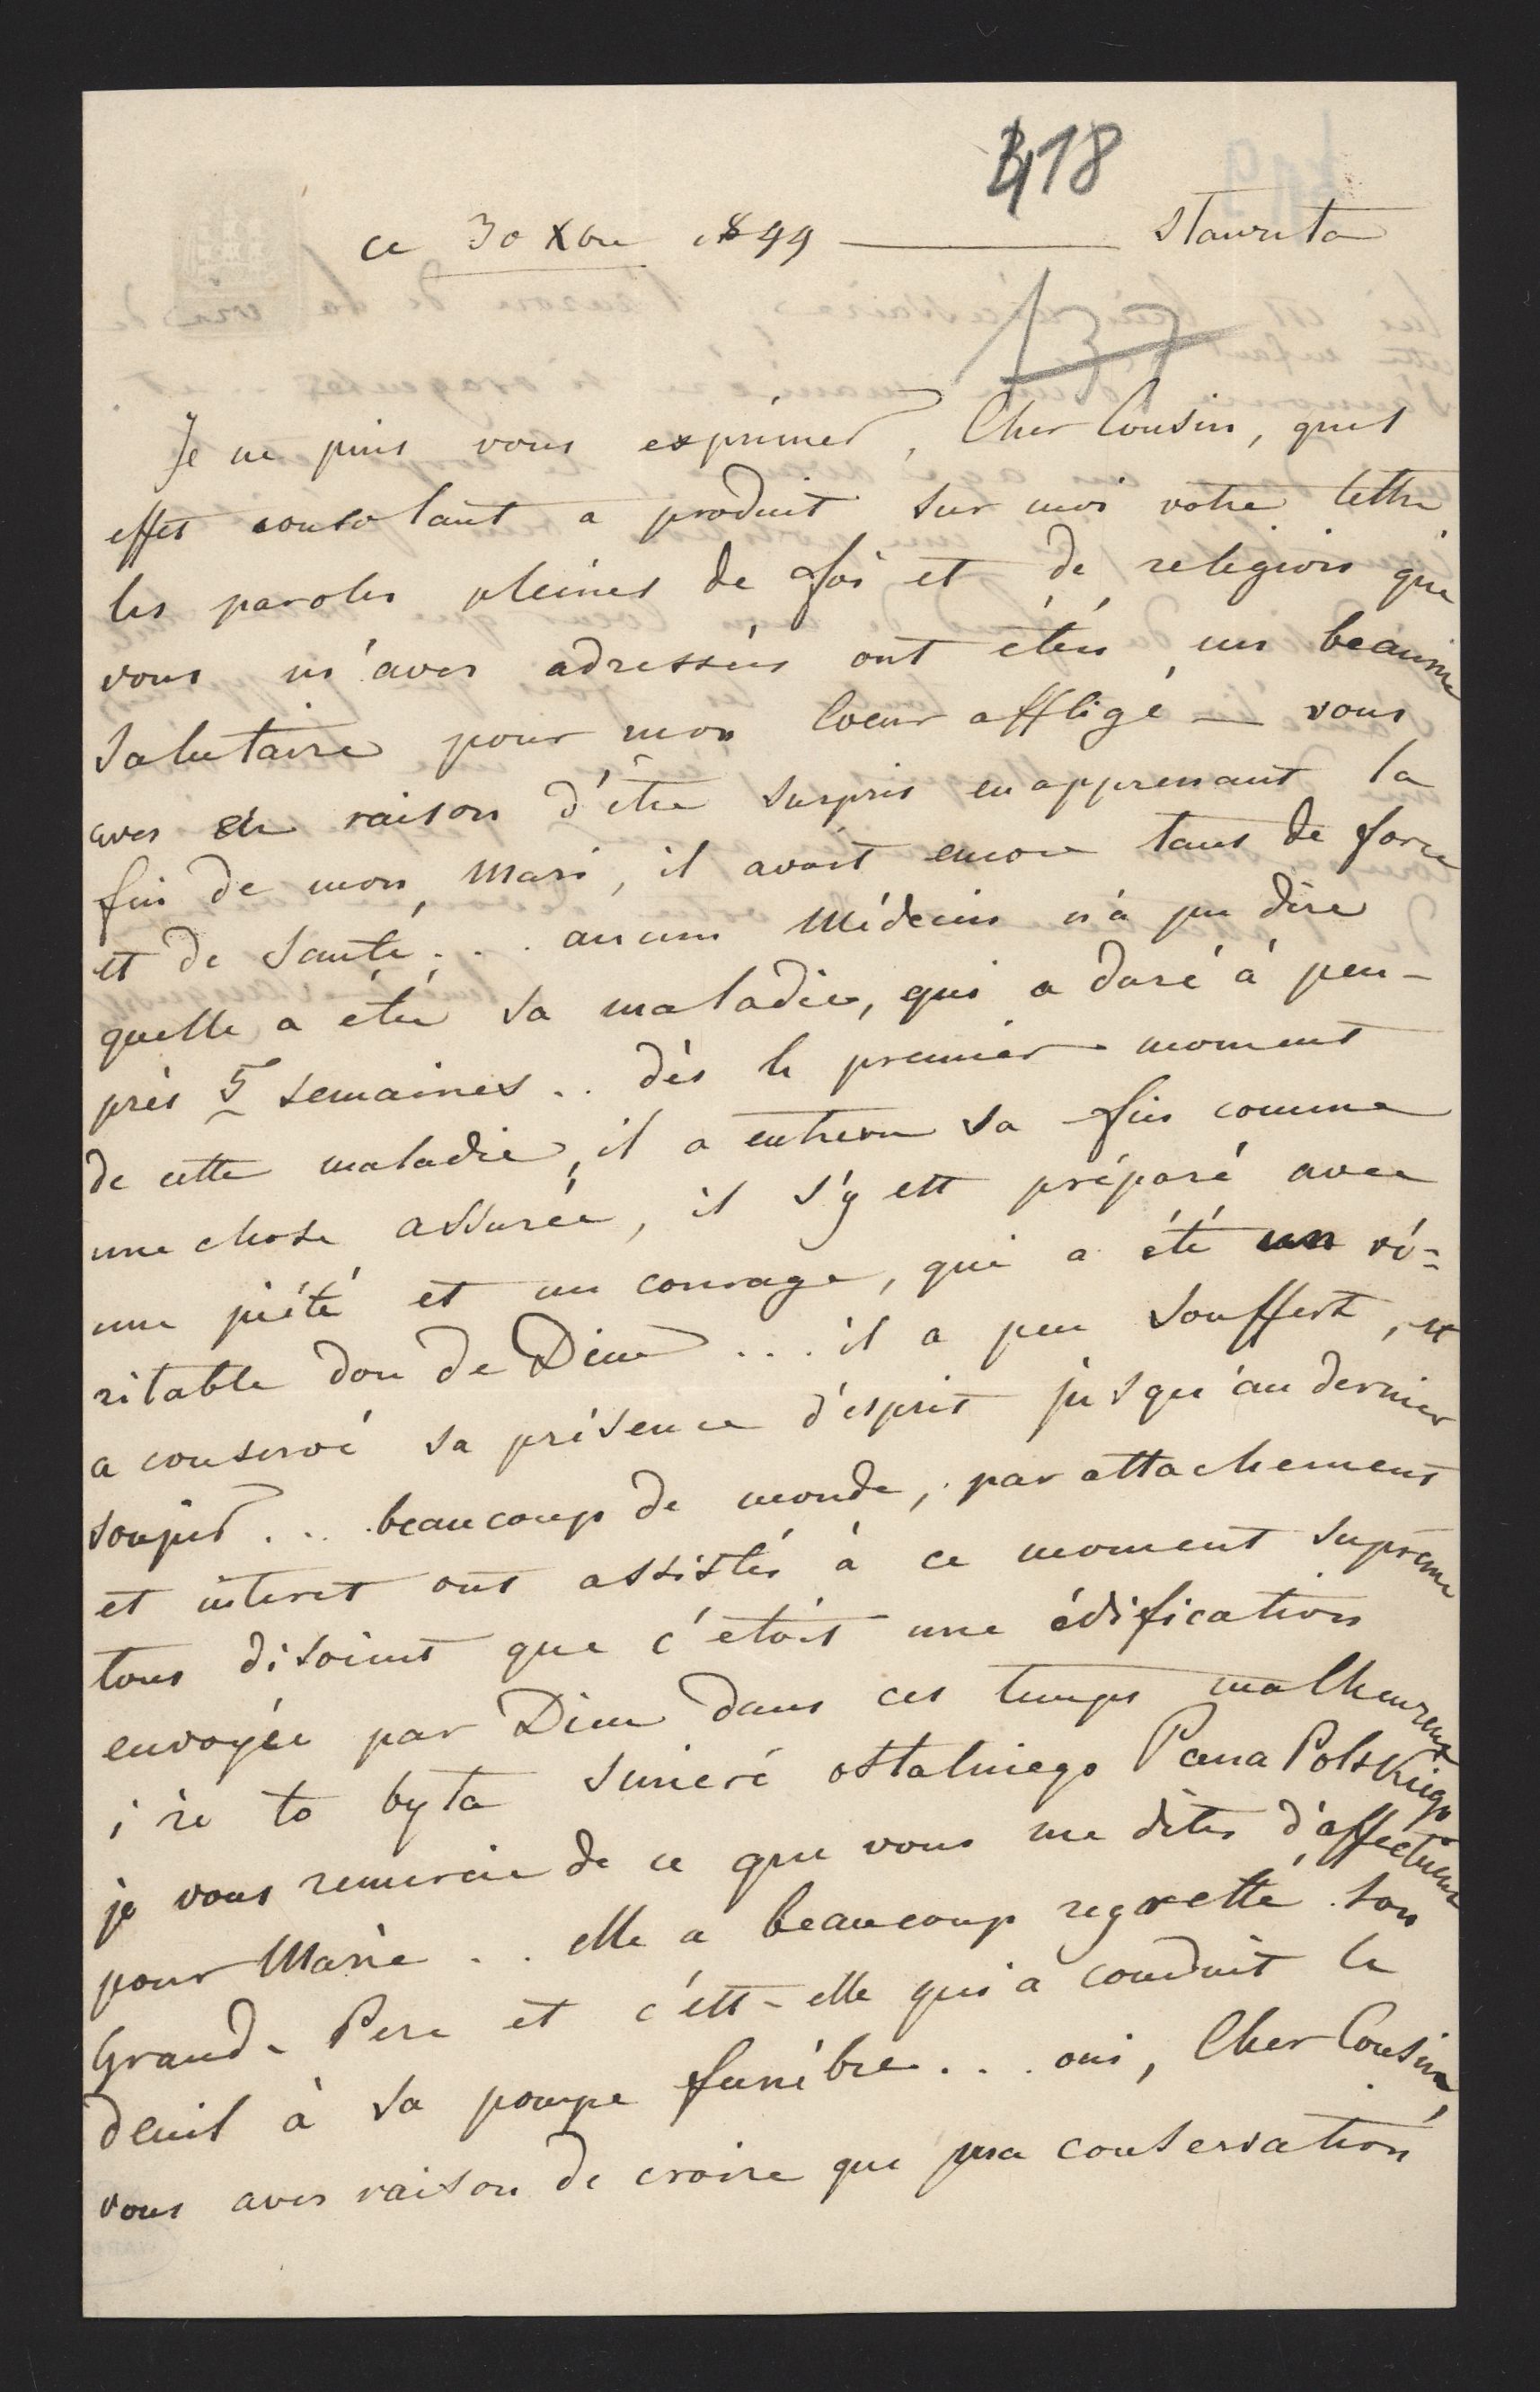 418
ce 30 Xbre 1849 — Stawuta
137
Je ne puis vous exprimer, Cher Cousin, quel
effet consolant a produit sur moi votre lettre
les paroles pleines de foi et de religion que
vous m'avez adressées ont étés un beaume
salutaire pour mon Coeur affligé — vous
avez raison d'être surpris en apprenant la
fin de mon Mari, il avoit encore tant de force
et de santé... aucun Médecin n'a pu dire
quelle a été sa maladie, qui a duré à peu-
près 5 semaines.. dès le premier moment
de cette maladie, il a entrevu sa fin comme
une chose assurée, il s'y est préparé avec
une piété et un courage, qui a été un vé=
ritable don de Dieu... il a peu souffert, et
a conservé sa présence d'esprit jusqu'au dernier
soupir... beaucoup de monde, par attachement
et interet ont assistés à ce moment suprême
tous disoient que c'étoit une édification
envoyée par Dieu dans ces temps malheureux
i że to była smierć ostatniego Pana Polskiego
je vous remercie de ce que vous me dites d'affectueux
pour Marie.. elle a beaucoup regretté son
Grand-Pere et c'est-elle qui a conduit le
deuil à sa pompe funébre... oui, Cher Cousin,
vous avez raison de croire que ma conservation